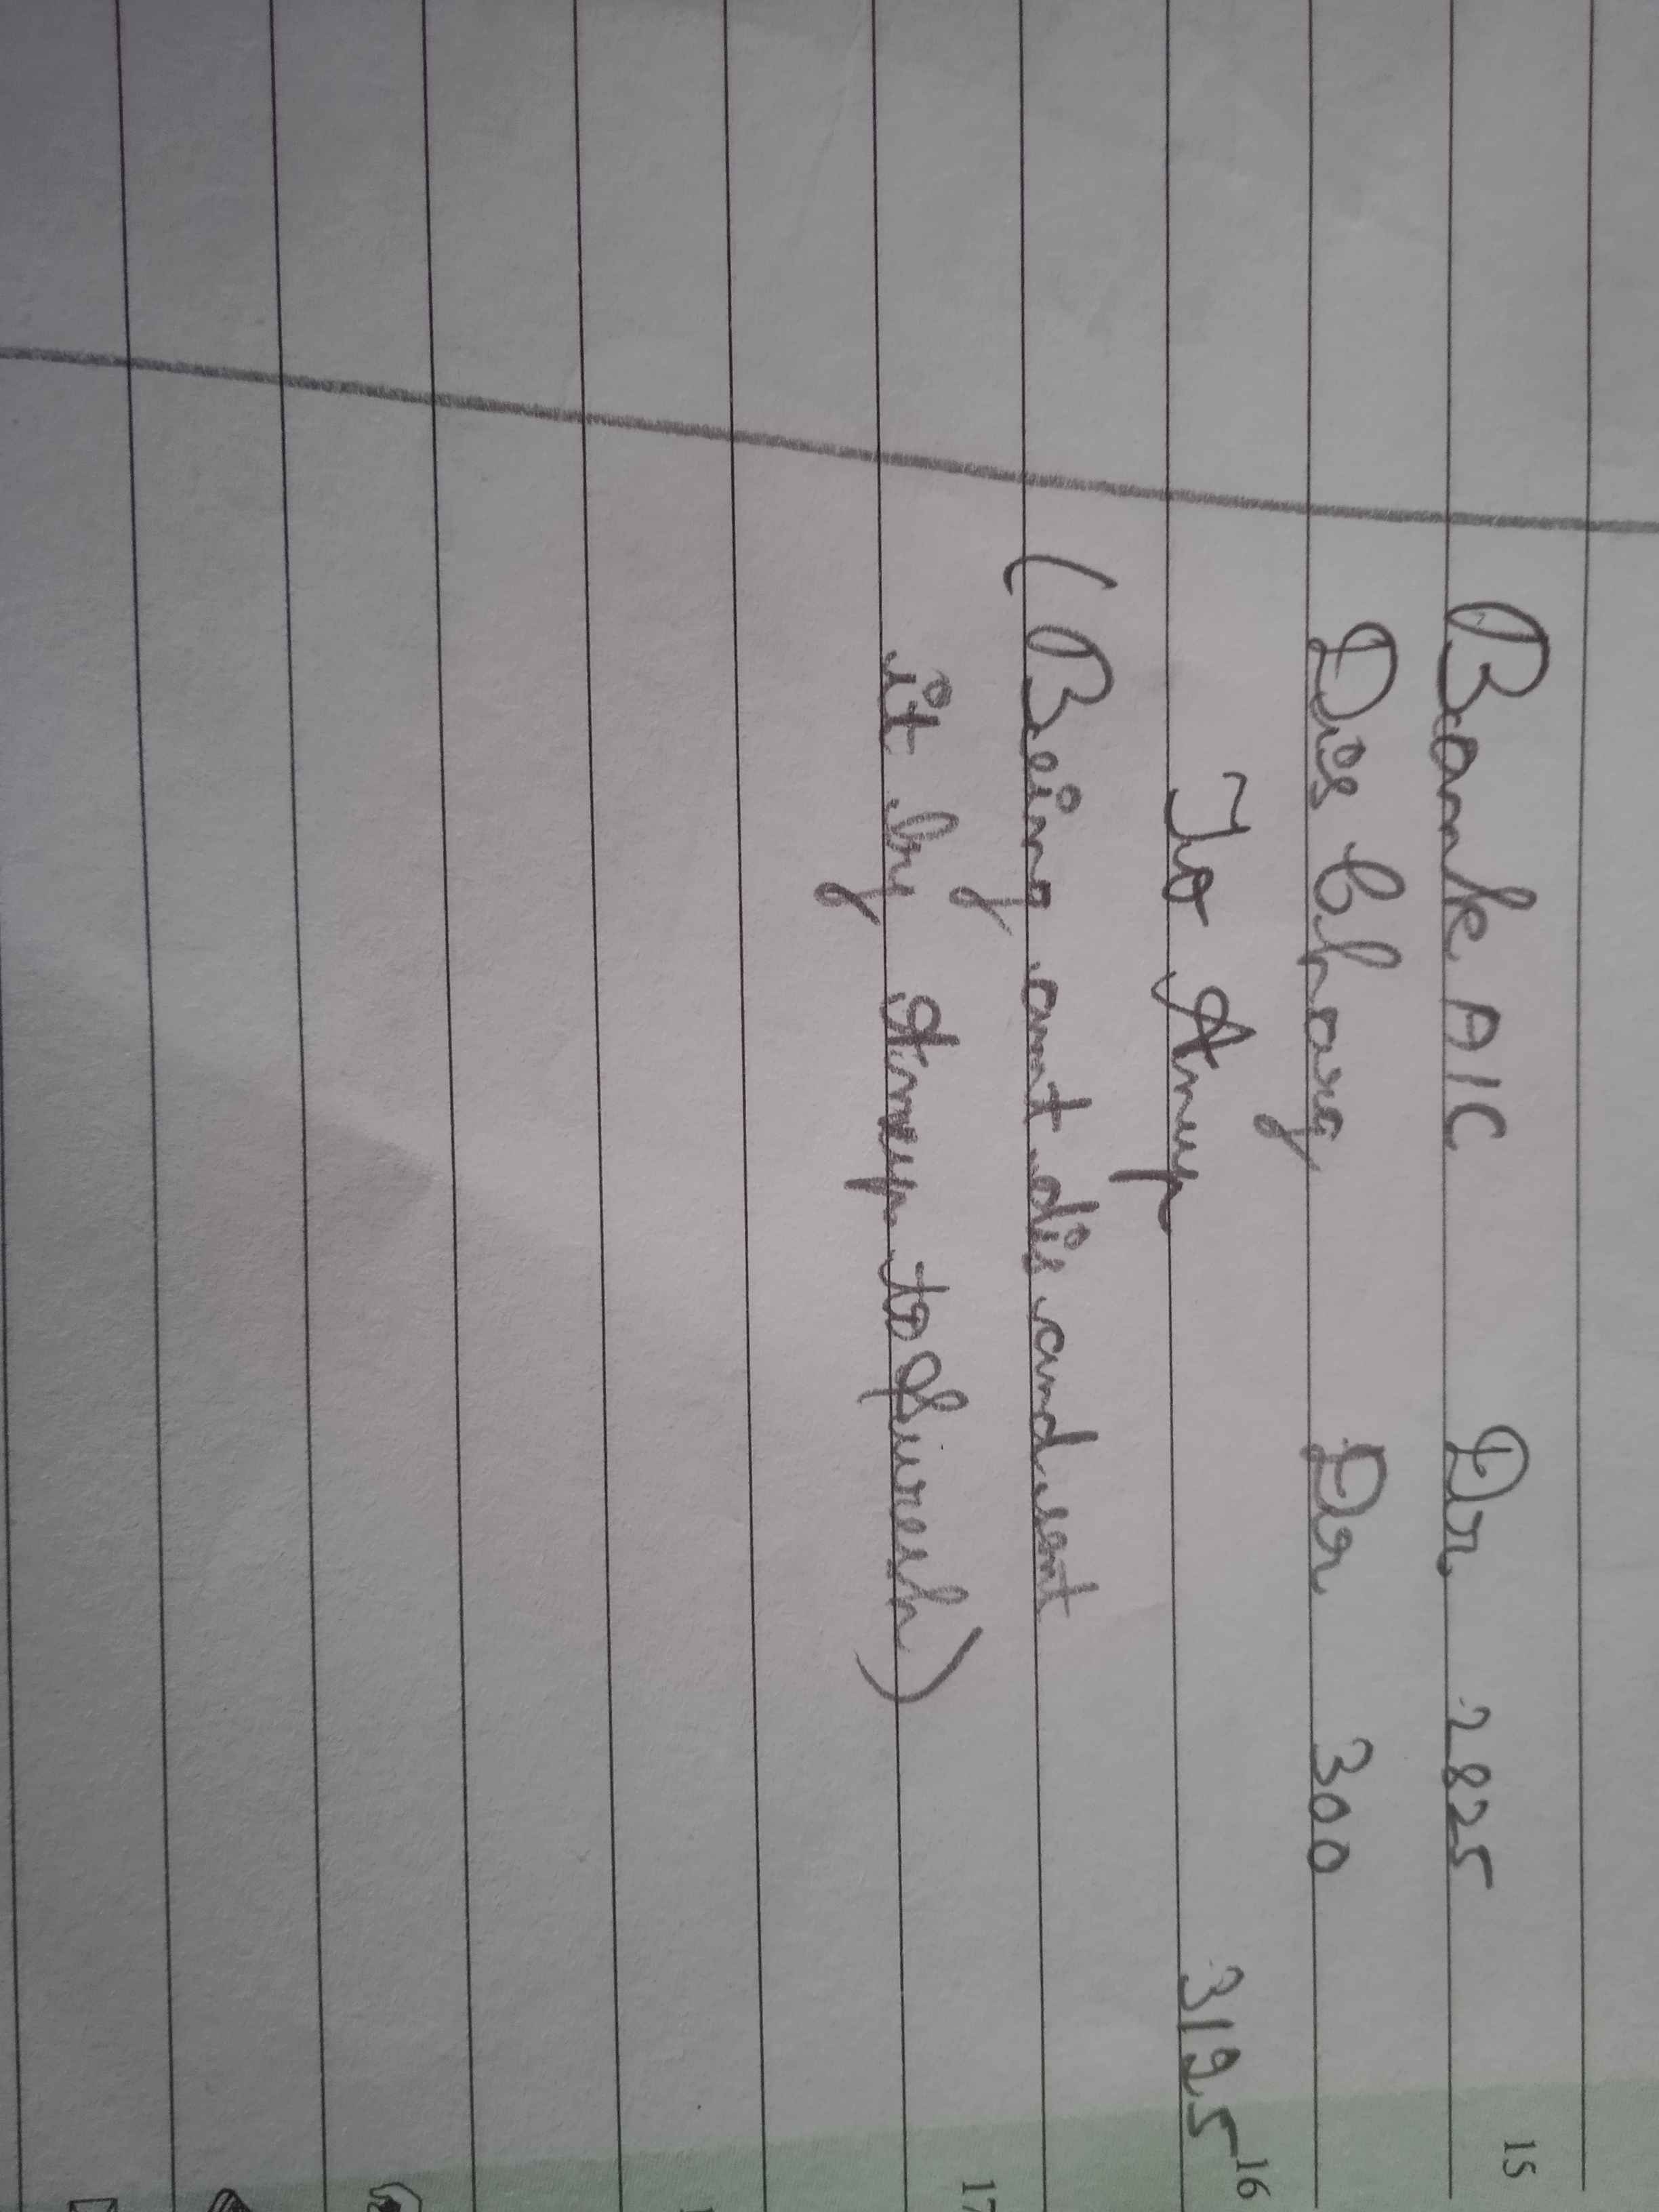 Bank A/C Dr 2825
Dis Charg Dr 300
To Anup 3125
(Being amt dis and sent
it by Anup to Suresh)
15
16
17